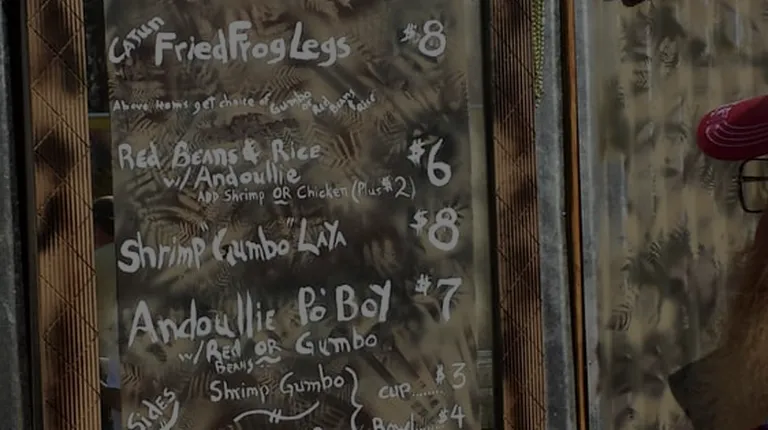 Cajun Fried Frog Legs $8
Above items get choice of Gumbo or Red Beans
Red Beans & Rice $6
w/ Andoullie
ADD Shrimp OR Chicken (Plus $2)
Shrimp "Gumbo"LAYA $8
Andoullie Po' Boy $7
w/ Red Beans OR Gumbo
SIDES
Shrimp Gumbo } cup...... $3
Bowl... $4